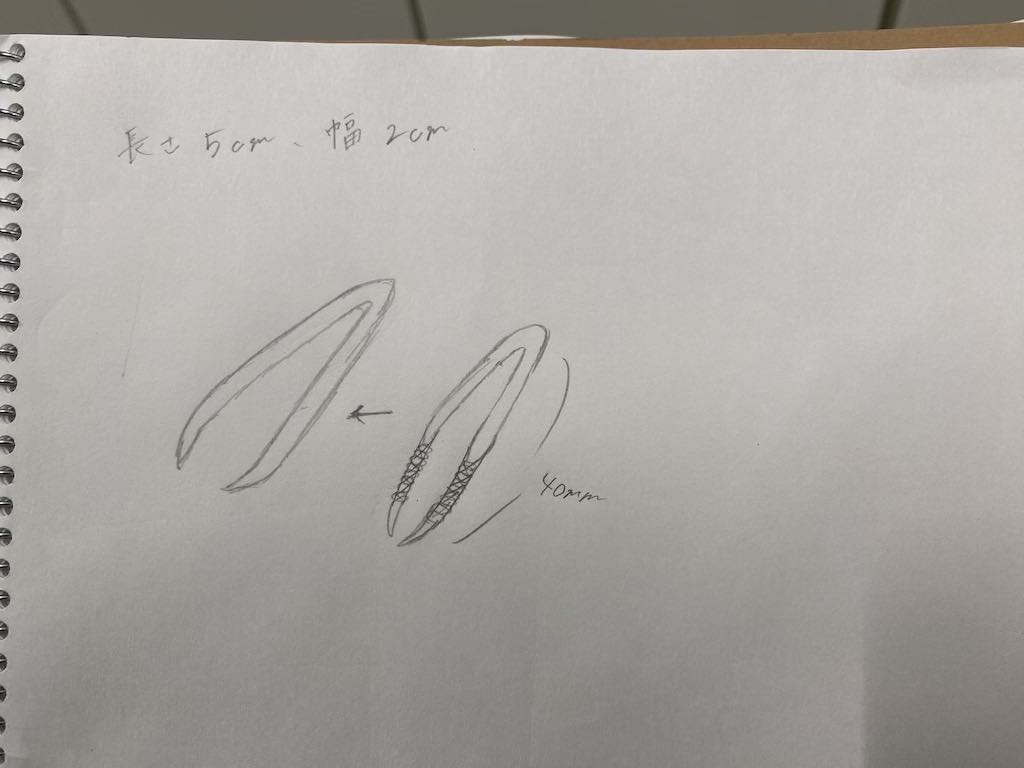 長さ 5cm、幅 2cm
40mm